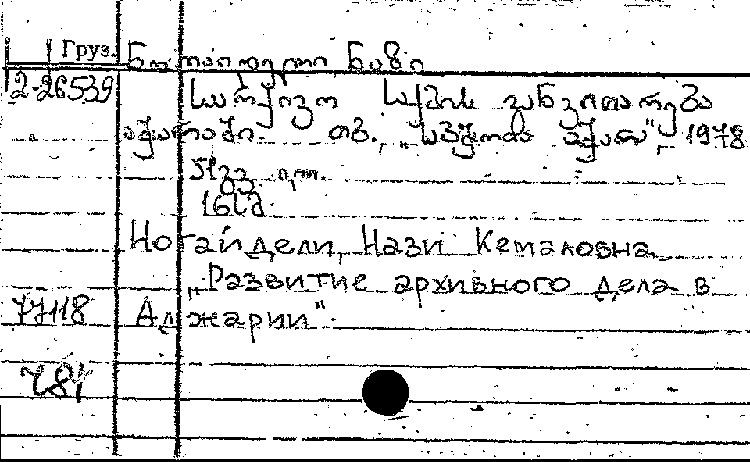 Груз. ნოღაიდელი ნაზი
2-26539 საარქივო საქმის განვითარება
აჭარაში. თბ., „საბჭოთა აჭარა", 1978
Ногайдели, Нази Кемаловна
„Развитие архивного дела в
77118 Аджарии".
784